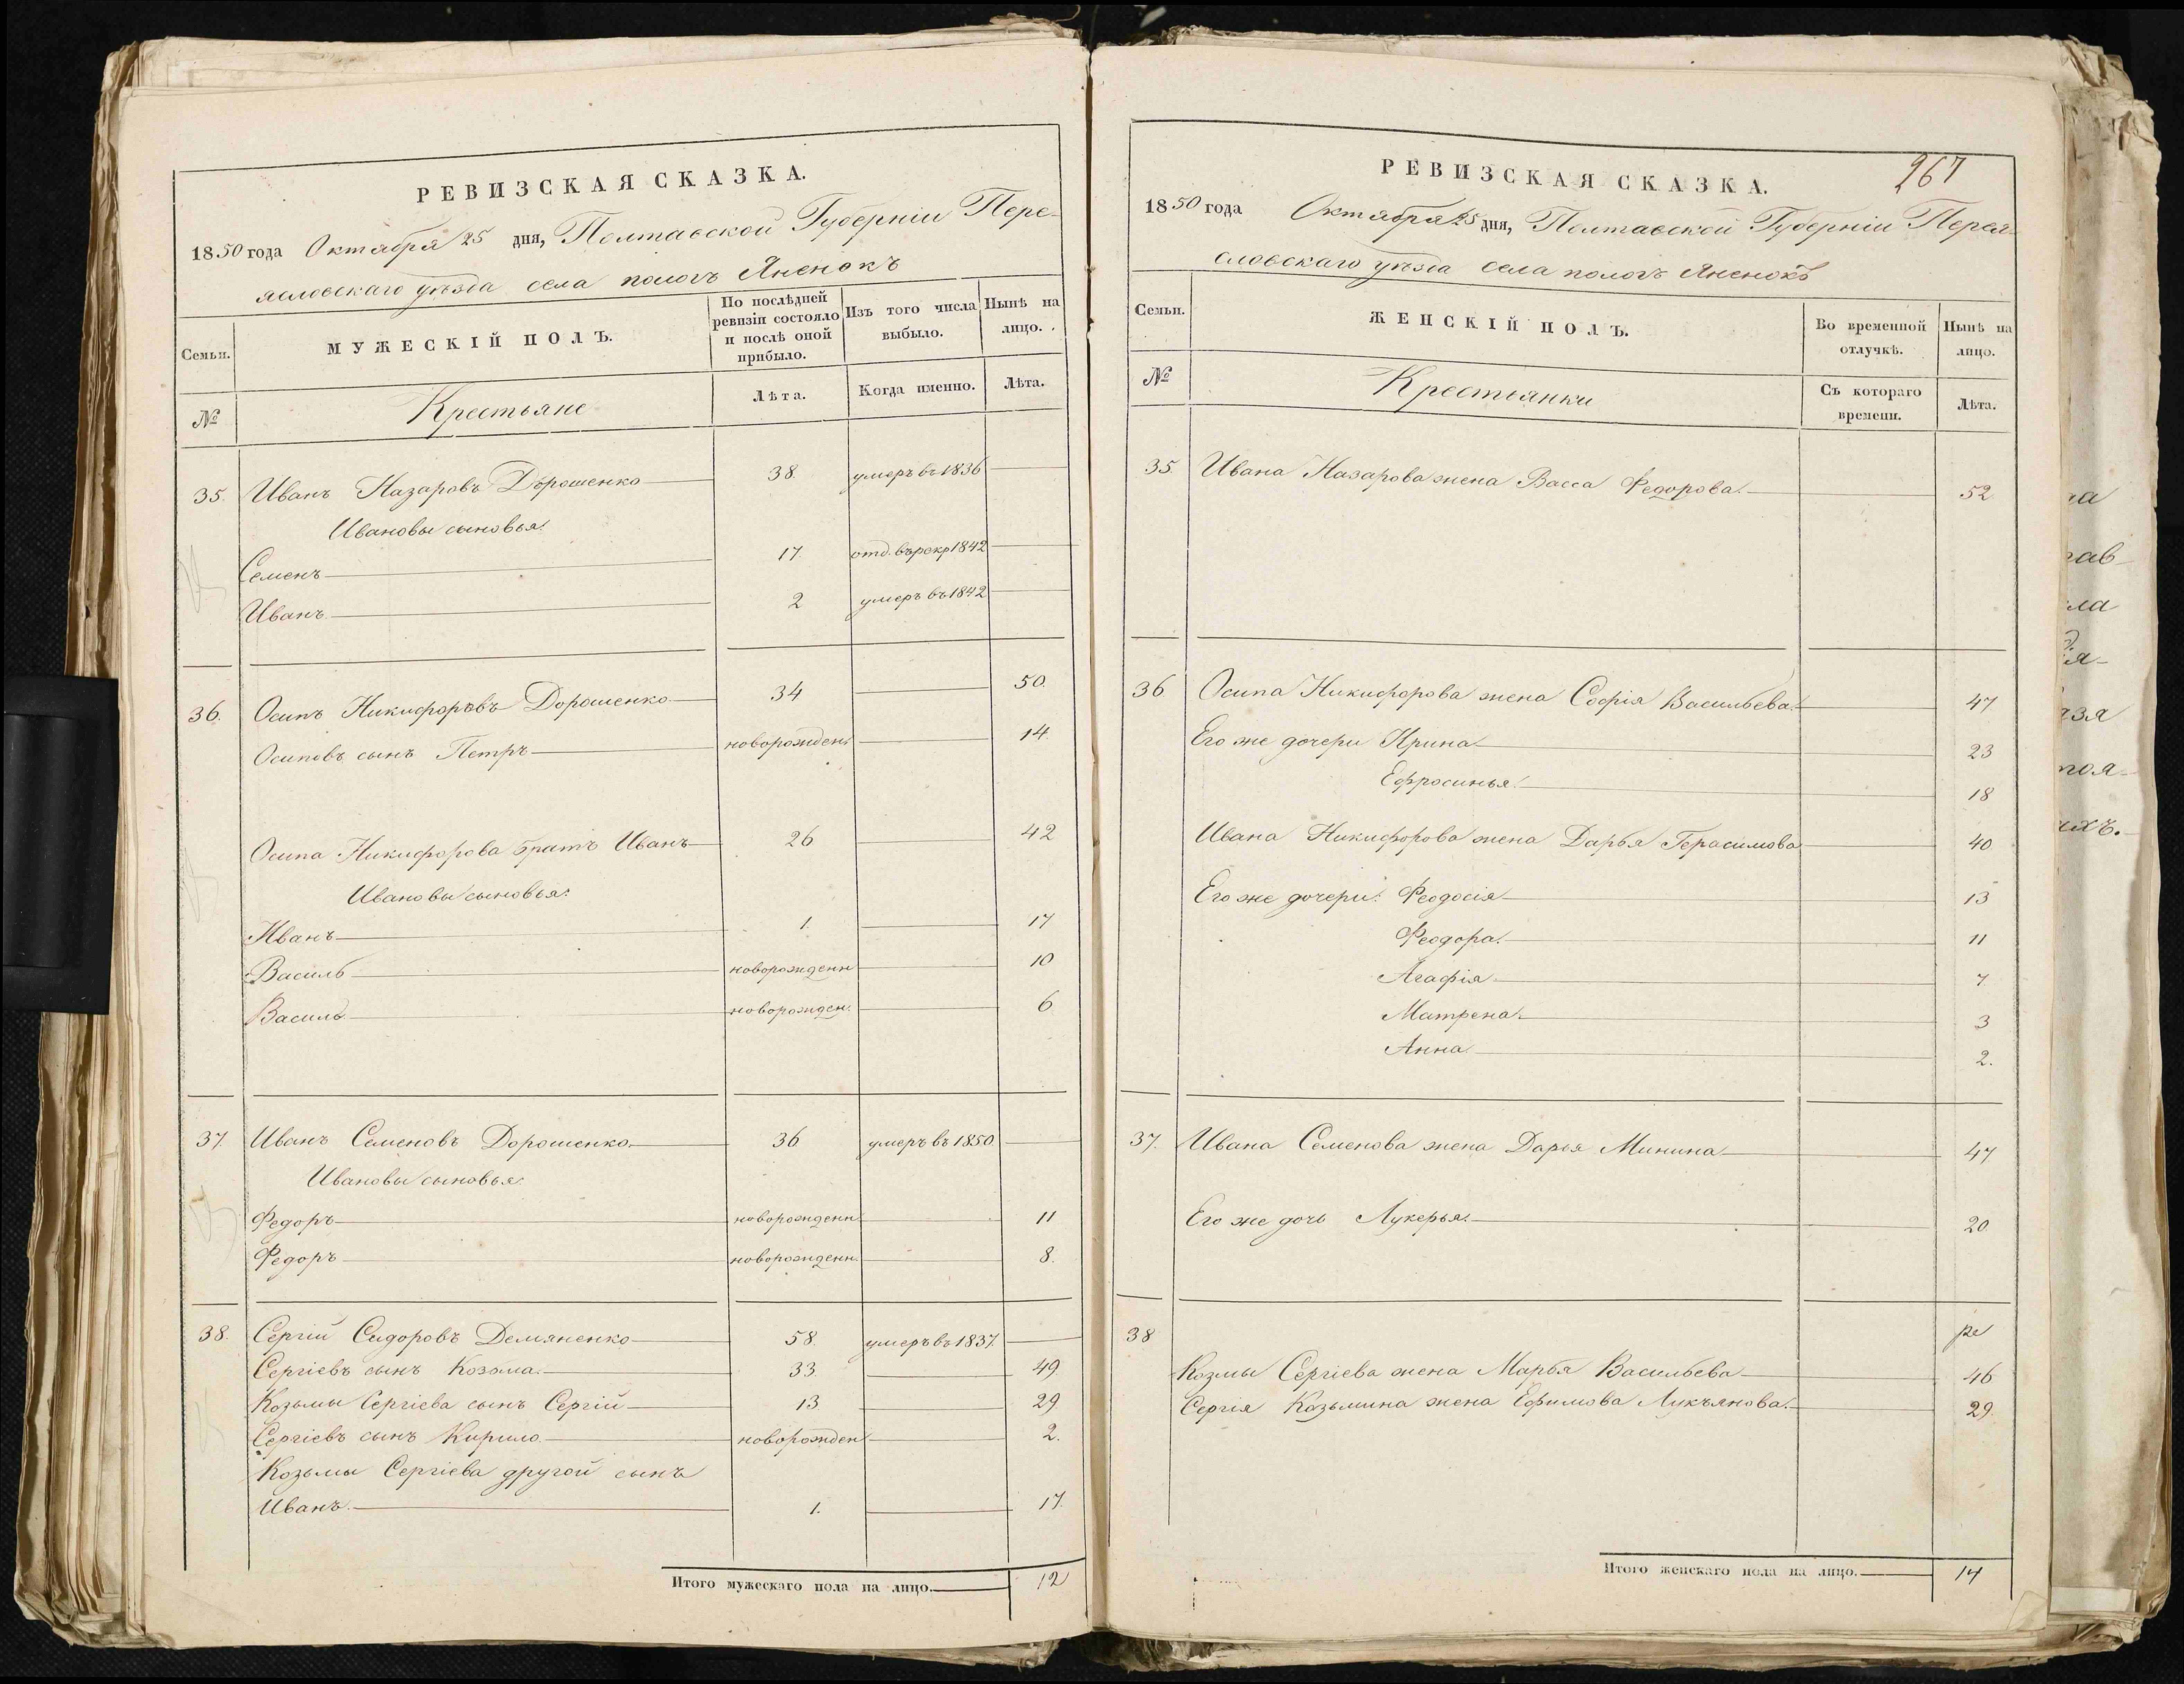 РЕВИЗСКАЯ СКАЗКА.
1850 года Октября 25 дня, Полтавской Губерніи Пере-
яславскаго уѣзда села пологъ Яненокъ
Семьи.
МУЖЕСКІЙ ПОЛЪ.
По послѣдней ревизіи состояло и послѣ оной прибыло.
Изъ того числа выбыло.
Нынѣ на лицо.
№
Крестьяне
Лѣта.
Когда именно.
Лѣта.
35. Иванъ Назаровъ Дорошенко 38. умеръ въ 1836
Ивановы сыновья:
Семенъ 17. отд. въ рекр 1842
Иванъ 2 умеръ въ 1842
36. Осипъ Никифоровъ Дорошенко 34 50.
Осиповъ сынъ Петръ новорожден 14.
Осипа Никифорова братъ Иванъ 26 42
Ивановы сыновья:
Иванъ 1. 17
Василь новорожденн 10
Василь новорожден. 6
37. Иванъ Семеновъ Дорошенко 36 умеръ въ 1850
Ивановы сыновья:
Федоръ новорожденн. 11
Федоръ новорожденн. 8.
38. Сергій Сидоровъ Демяненко 58. умеръ въ 1837.
Сергіевъ сынъ Козьма 33. 49.
Козьмы Сергіева сынъ Сергій 13 29
Сергіевъ сынъ Кирило новорожден 2.
Козьмы Сергіева другой сынъ
Иванъ. 1. 17.
Итого мужескаго пола на лицо. 12
267
РЕВИЗСКАЯ СКАЗКА.
1850 года Октября 25 дня, Полтавской Губерніи Перея-
словскаго уѣзда села пологъ Яненокъ
Семьи.
ЖЕНСКІЙ ПОЛЪ.
Во временной отлучкѣ.
Нынѣ на лицо.
№
Крестьянки
Съ котораго времени.
Лѣта.
35. Ивана Назарова жена Васса Федорова. 52
36 Осипа Никифорова жена Софія Васильева 47
Его же дочери Ирина 23
Ефросинья 18
Ивана Никифорова жена Дарья Герасимова 40
Его же дочери: Феодосія 13
Феодора. 11
Агафія 7
Матрена 3
Анна 2.
37. Ивана Семенова жена Дарья Минина 47
Его же дочь Лукерья. 20
38
Козмы Сергіева жена Марья Васильева 46
Сергія Козьмина жена Ефимова Лукъянова. 29.
Итого женскаго пола на лицо. 14